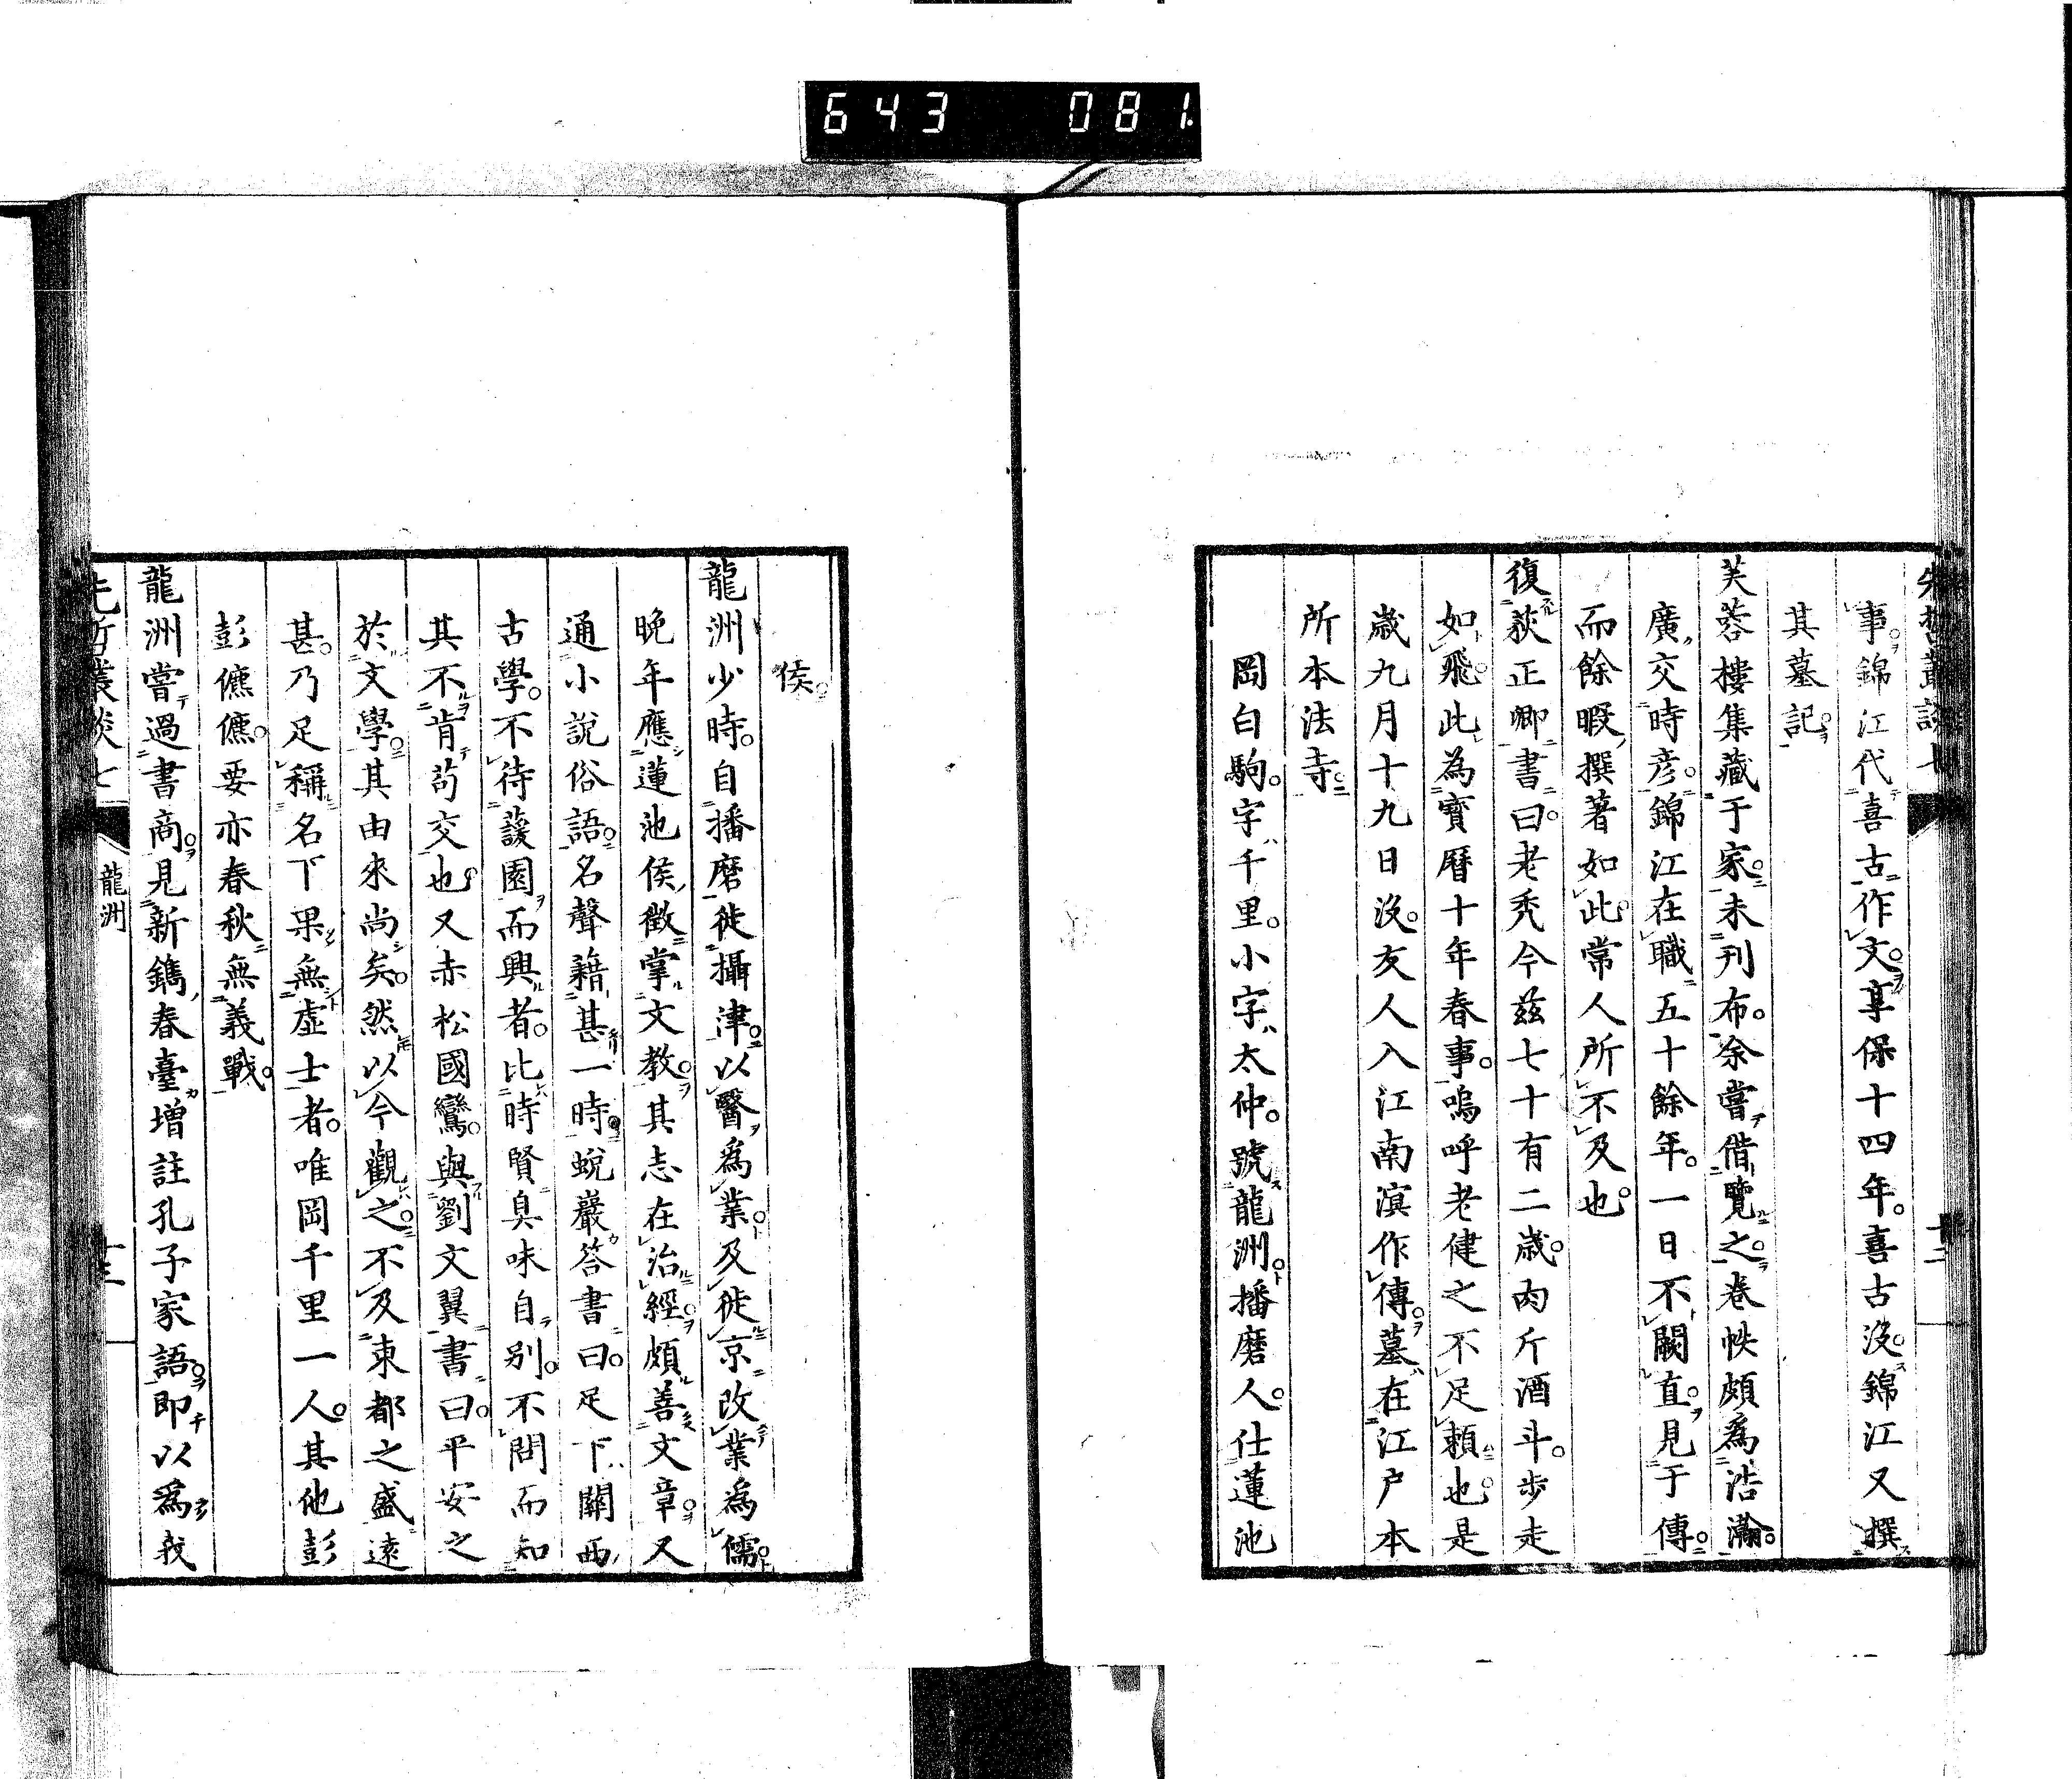 643 081
事錦江代喜古作文享保十四年喜古沒錦江又撰
其墓記
芙蓉樓集藏于家未刊布余嘗借覽之卷帙頗為浩瀚
廣交時彥錦江在職五十餘年一日不闕直見于傳
而餘暇撰著如此常人所不及也
復荻正卿書曰老禿今茲七十有二歲肉斤酒斗步走
如飛此為寶曆十年春事嗚呼老健之不足賴也是
歲九月十九日沒友人入江南溟作傳墓在江戶本
所本法寺
岡白駒字千里小字太仲號龍洲播磨人仕蓮池
侯
龍洲少時自播磨徙攝津以醫為業及徙京改業為儒
晚年應蓮池侯徵掌文教其志在治經頗善文章又
通小說俗語名聲藉甚一時蛻巖答書曰足下關西
古學不待蘐園而興者比時賢臭味自別不問而知
其不肯苟交也又赤松國鸞與劉文翼書曰平安之
於文學其由來尚矣然以今觀之不及東都之盛遠
甚乃足稱名下果無虛士者唯岡千里一人其他彭
彭儦儦要亦春秋無義戰
龍洲嘗過書商見新鐫春臺增註孔子家語即以為我
先哲叢談七
龍洲
十三